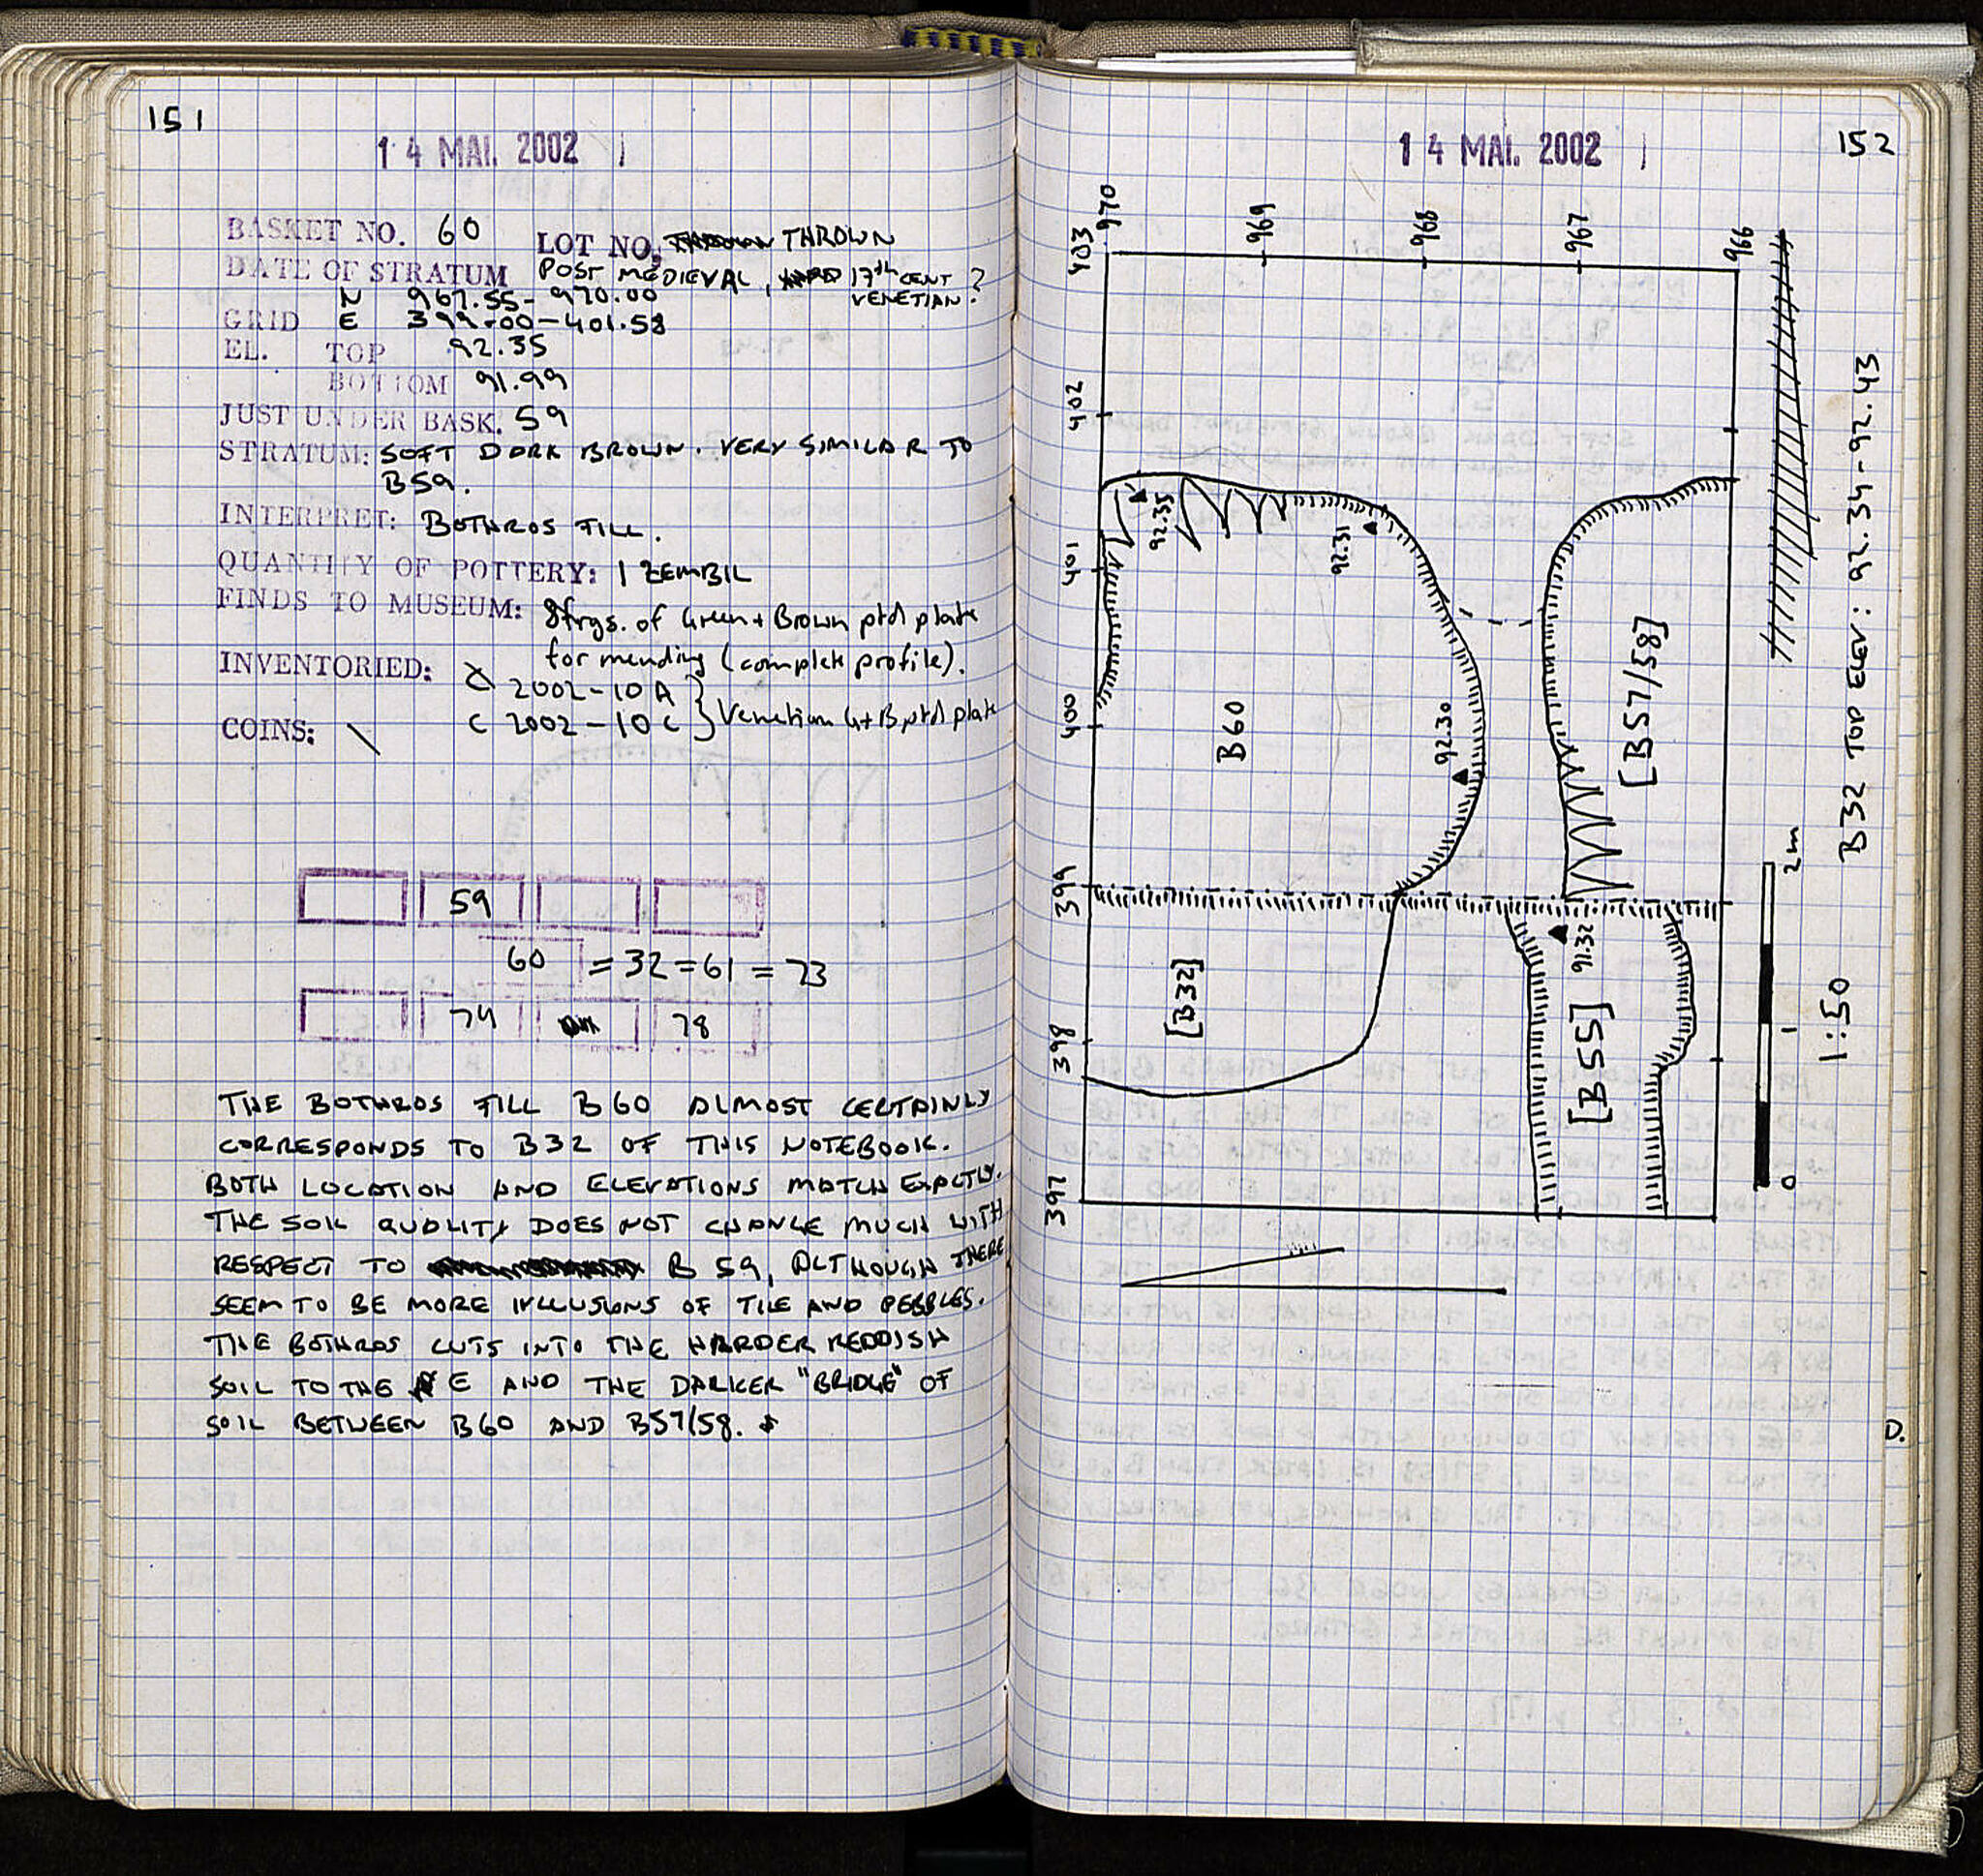 151
14 MAI. 2002
BASKET NO. 60 LOT NO. THROWN
DATE OF STRATUM POST MEDIEVAL, 17th CENT VENETIAN?
GRID N 967.55-970.00
E 399.00-401.58
EL. TOP 92.35
BOTTOM 91.99
JUST UNDER BASK. 59
STRATUM: SOFT DARK BROWN. VERY SIMILAR TO
B59.
INTERPRET: BOTHROS FILL.
QUANTITY OF POTTERY: 1 ZEMBIL
FINDS TO MUSEUM: 8 frgs. of Green + Brown ptd plate
for mending (complete profile).
INVENTORIED:
2002-10A
C 2002-10C } Venetian G+B ptd plate
COINS: \
59
60 = 32 = 61 = 73
74 78
THE BOTHROS FILL B60 ALMOST CERTAINLY
CORRESPONDS TO B32 OF THIS NOTEBOOK.
BOTH LOCATION AND ELEVATIONS MATCH EXACTLY.
THE SOIL QUALITY DOES NOT CHANGE MUCH WITH
RESPECT TO B 59, ALTHOUGH THERE
SEEM TO BE MORE INCLUSIONS OF TILE AND PEBBLES.
THE BOTHROS CUTS INTO THE HARDER REDDISH
SOIL TO THE E AND THE DARKER "BRIDGE" OF
SOIL BETWEEN B60 AND B57/58.
14 MAI. 2002
152
970
969
968
967
966
403
402
401
400
399
398
397
92.35
92.31
92.30
91.32
B60
[B57/58]
[B32]
[B55]
0 1 2m
1:50
B32 TOP ELEV: 92.34-92.43
D.